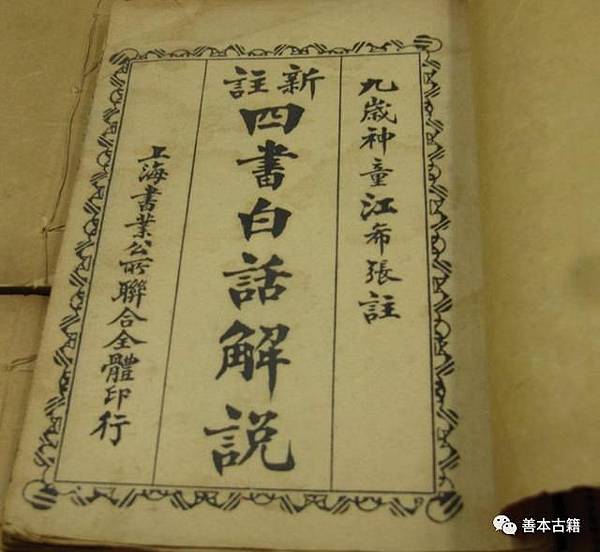 九歲神童江希張註
新註
四書白話解說
上海書業公所聯合全體印行
善本古籍